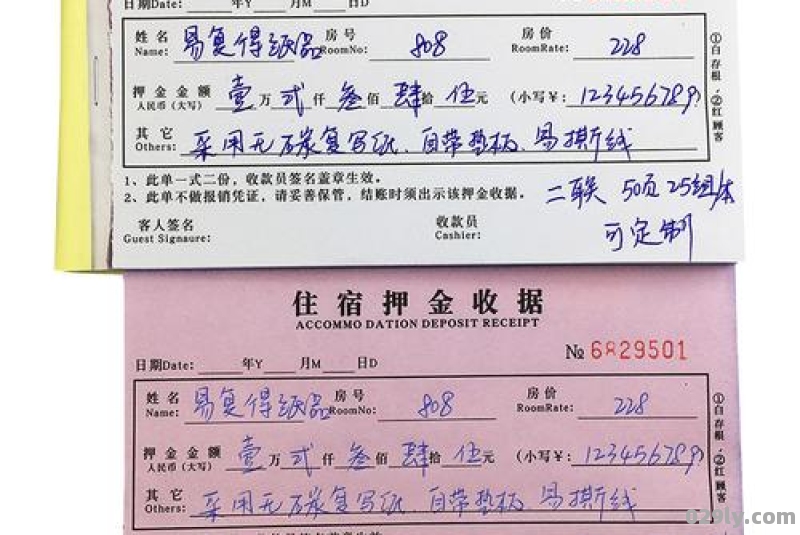 日期Date: 年Y 月M 日D
姓名 Name: 易复得纸品 房号 RoomNo: 808 房价 RoomRate: 228
押金金额 人民币(大写) 壹万弍仟叁佰肆拾伍元 (小写¥: 123456789)
其它 Others: 采用无碳复写纸、自带垫板、易撕线
①白存根·②红顾客
1、此单一式二份,收款员签名盖章生效。
2、此单不做报销凭证,请妥善保管,结账时须出示该押金收据。
二联 50页 25组/本
可定制
客人签名 收款员
Guest Signaure: Cashier:
住宿押金收据
ACCOMMO DATION DEPOSIT RECEIPT
№ 6829501
日期Date: 年Y 月M 日D
姓名 Name: 易复得纸品 房号 RoomNo: 808 房价 RoomRate: 228
押金金额 人民币(大写) 壹万弍仟叁佰肆拾伍元 (小写¥: 123456789)
其它 Others: 采用无碳复写纸、自带垫板、易撕线
①白存根·②红顾客
029ly.com